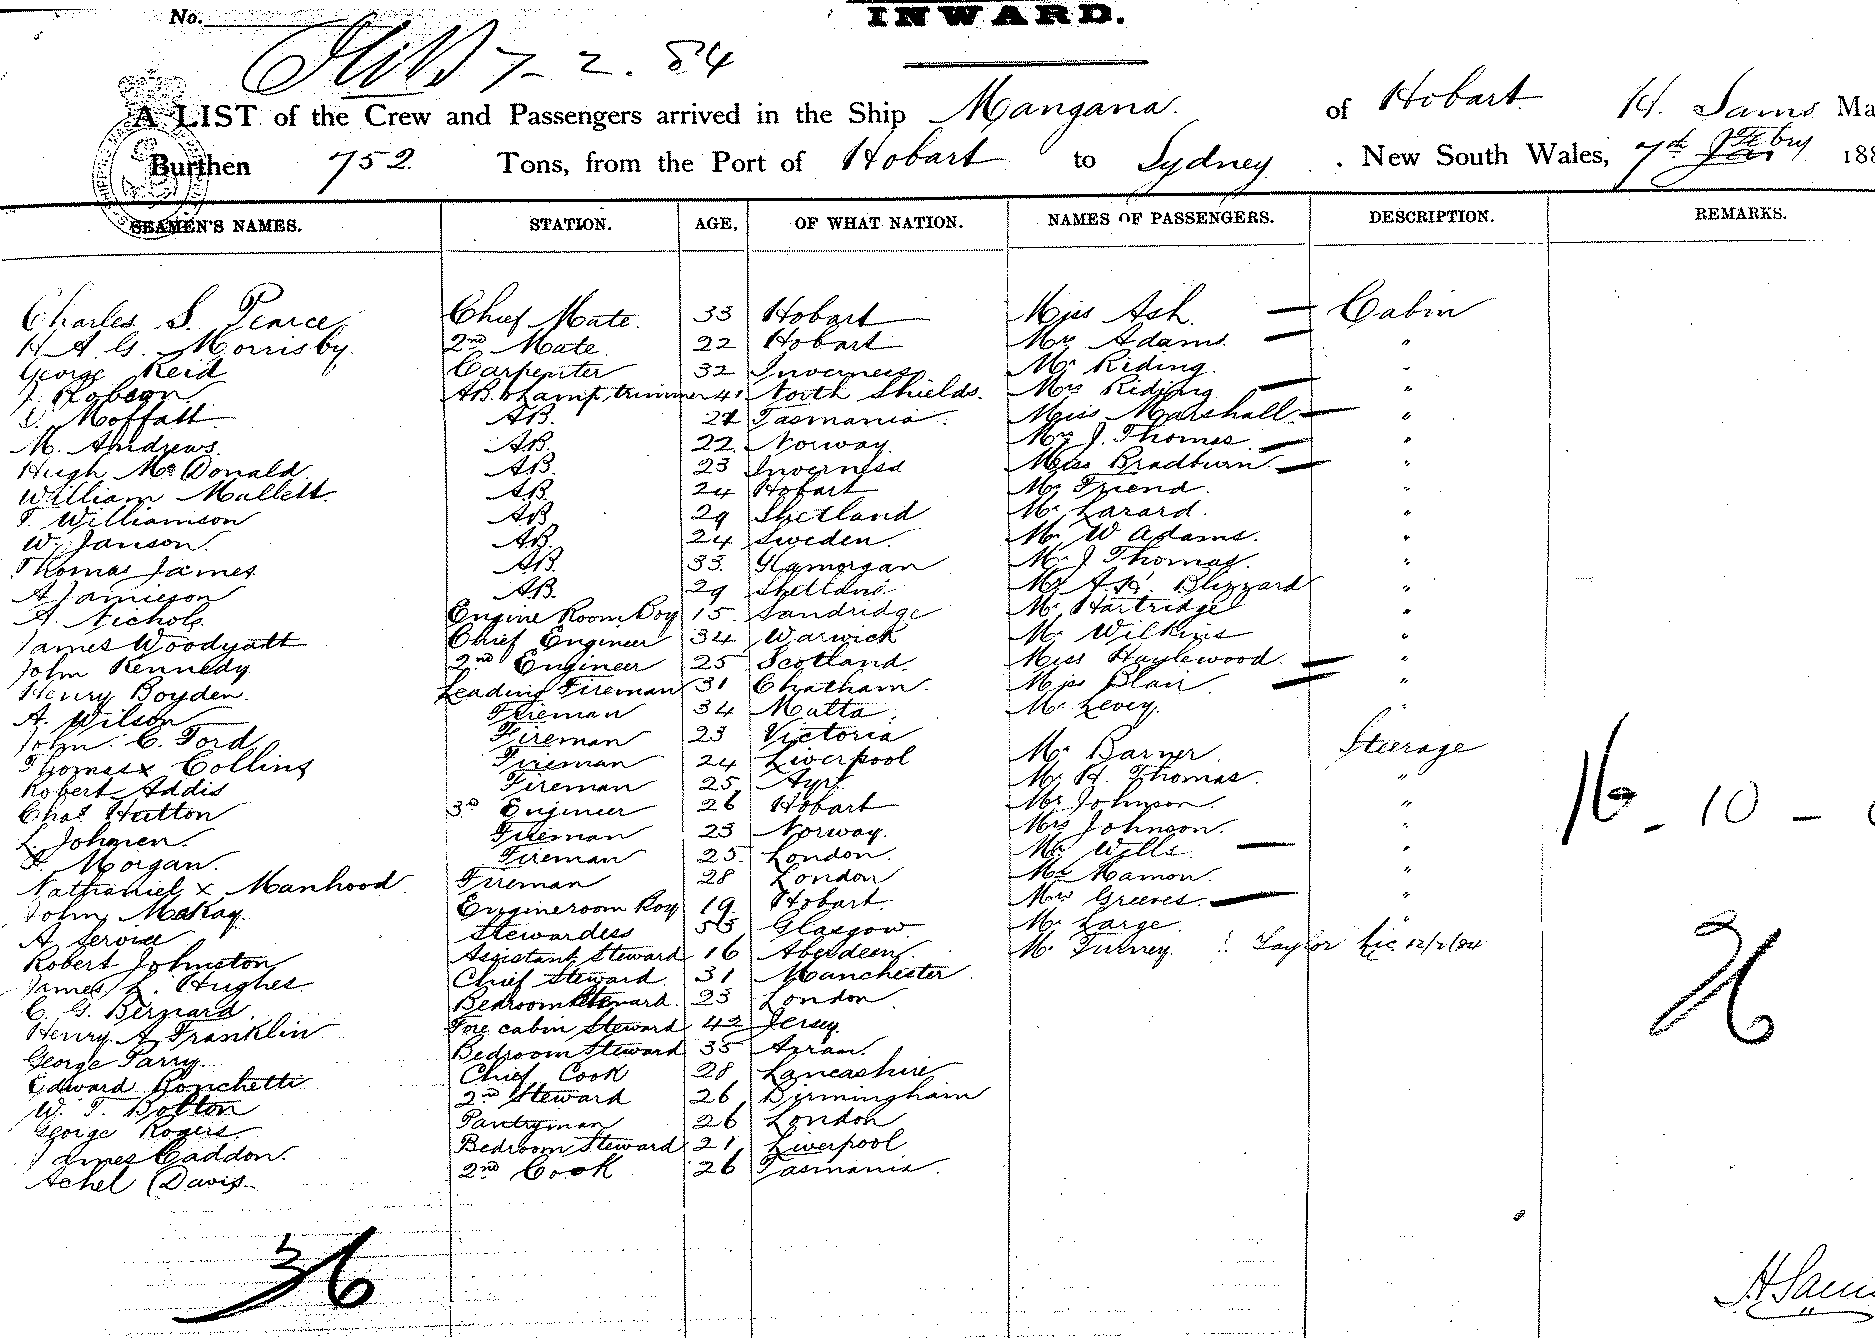 No.
INWARD.
7-2.84
A LIST of the Crew and Passengers arrived in the Ship Mangana. of Hobart H. Sams Ma
Burthen 752 Tons, from the Port of Hobart to Sydney. New South Wales, 7th Febry 188
SEAMEN'S NAMES. STATION. AGE. OF WHAT NATION. NAMES OF PASSENGERS. DESCRIPTION. REMARKS.
Charles S. Pearce Chief Mate 33 Hobart Miss Ash. Cabin
H A G. Morrisby 2nd Mate 22 Hobart Mrs Adams "
George Reid Carpenter 32 Inverness Mr Riding "
J. Robson AB. & Lamp trimmer 41 North Shields. Mrs Riding "
D. Moffatt AB. 21 Tasmania. Miss Marshall "
M. Andrews AB. 22 Norway Mrs J. Thomas "
Hugh McDonald AB. 23 Inverness Miss Bradburn "
William Mallett. AB. 24 Hobart Mr Friend. "
T. Williamson AB 29 Shetland Mr Larard. "
W. Janson. AB 24 Sweden. Mr W Adams. "
Thomas James AB. 33 Glamorgan Mr J Thomas. "
A Jamieson AB. 29 Shetland Mr Blizzard "
A. Nichols Engine Room Boy 15 Sandridge Mr Hartridge "
James Woodyatt Chief Engineer 34 Warwick Mr Wilkins "
John Kennedy 2nd Engineer 25 Scotland. Miss Haylewood "
Henry Boyden. Leading Fireman 31 Chatham. Miss Blair "
A. Wilson Fireman 34 Malta Mr Levey. "
John C. Ford Fireman 23 Victoria Mr Barner Steerage
Thomas x Collins Fireman 24 Liverpool Mr H. Thomas. "
Robert Addis Fireman 25 Ayr Mr Johnson "
Chas Hutton 3rd Engineer 26 Hobart Mrs Johnson. "
L. Johgren Fireman 23 Norway. Wills "
Morgan. Fireman 25 London Mr Hamon. "
Nathaniel x Manhood Fireman 28 London Mrs Greeves "
John McKay. Engineroom Boy 19 Hobart Mr Large "
A Service Stewardess 55 Glasgow Mr Turney Taylor 12/2/84
Robert Johnston Assistant Steward 16 Aberdeen
James L. Hughes Chief Steward 31 Manchester
C. G. Bernard Bedroom Steward 23 London
Henry A Franklin Fore cabin Steward 42 Jersey
George Parry Bedroom Steward 35
Edward Ronchetti Chief Cook 28 Lancashire
W. T. Bolton 2nd Steward 26 Birmingham
George Rogers Pantryman 26 London
James Caddon. Bedroom Steward 21 Liverpool
Davis 2nd Cook 26 Tasmania.
16 - 10 -
26
36
H Sams